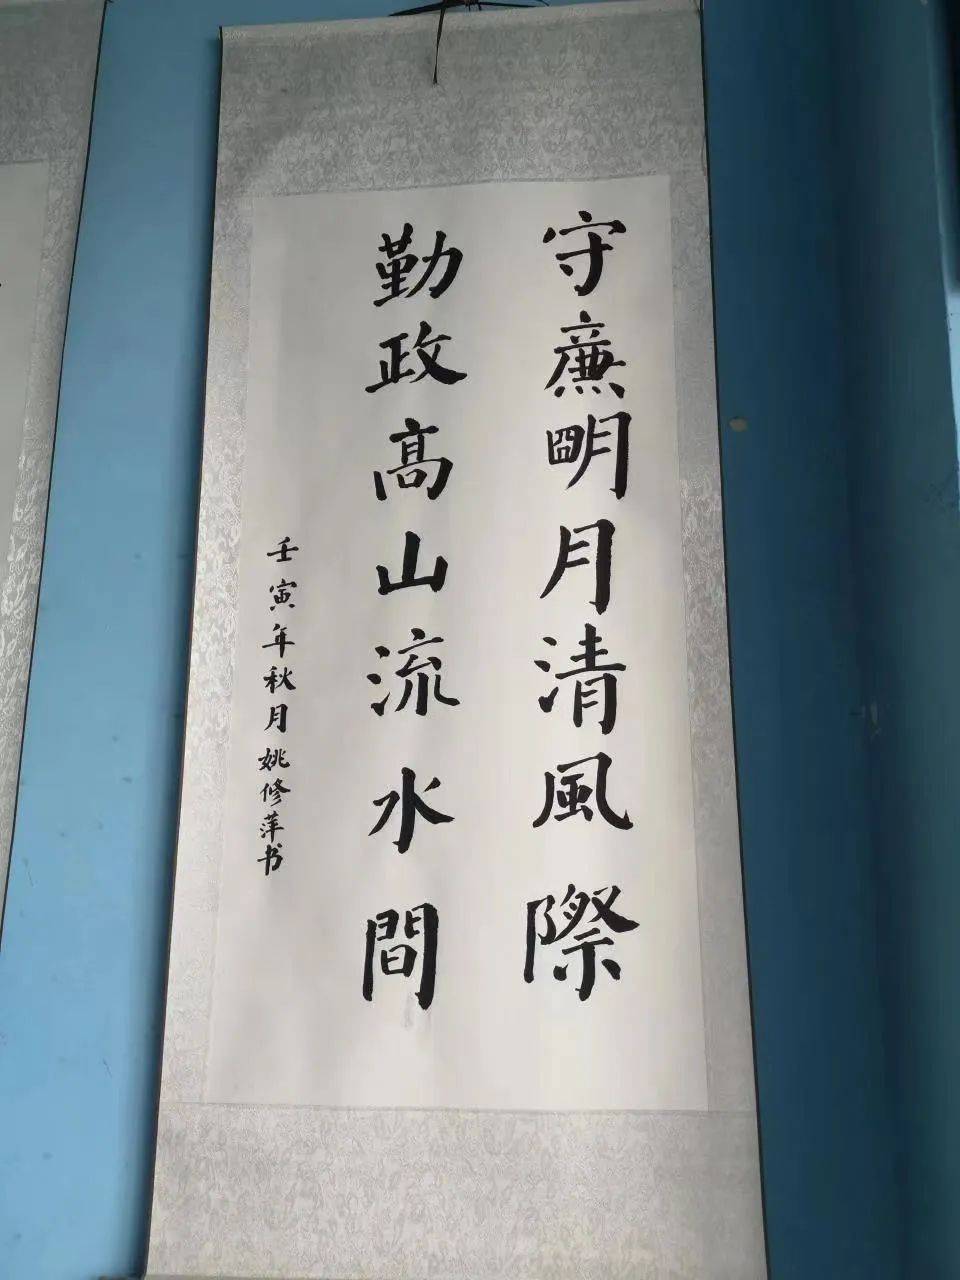 守廉明月清風際
勤政高山流水間
壬寅年秋月姚修萍书